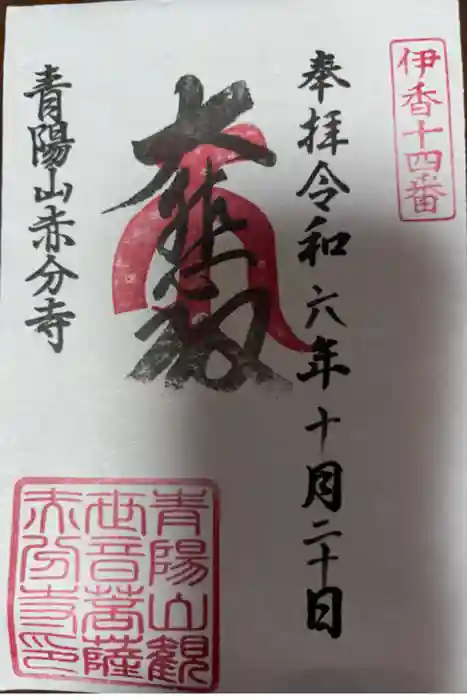 伊香十四番
奉拝令和六年十月二十日
大悲殿
青陽山赤分寺
青陽山觀
世音菩薩
赤分寺印